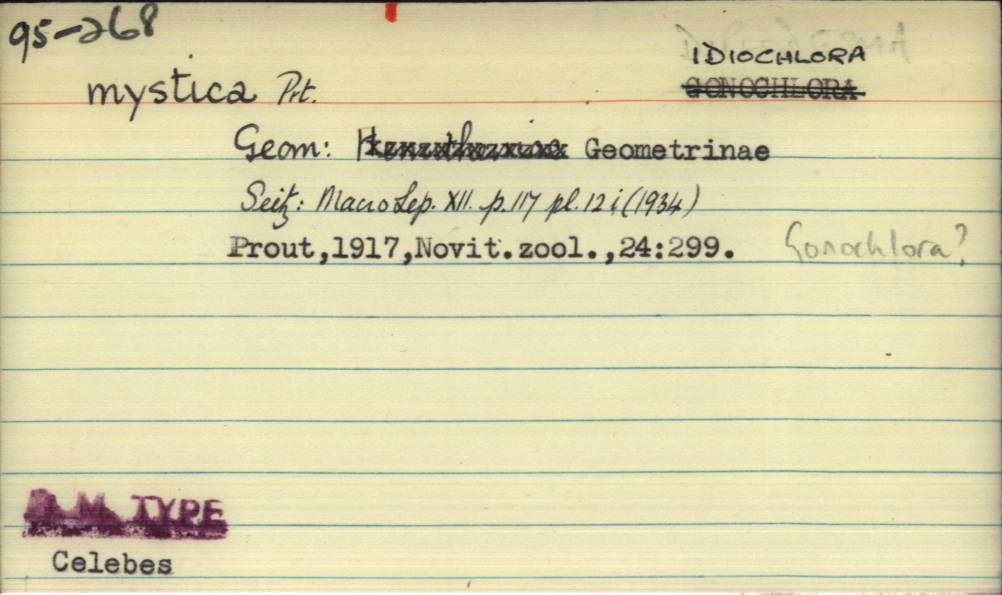 95-268
IDIOCHLORA
mystica Prt. GONOCHLORA
Geom: Geometrinae
Seitz: MacroLep. XII. p.117 pl.12i(1934)
Prout,1917,Novit.zool.,24:299. Gonochlora?
B.M. TYPE
Celebes